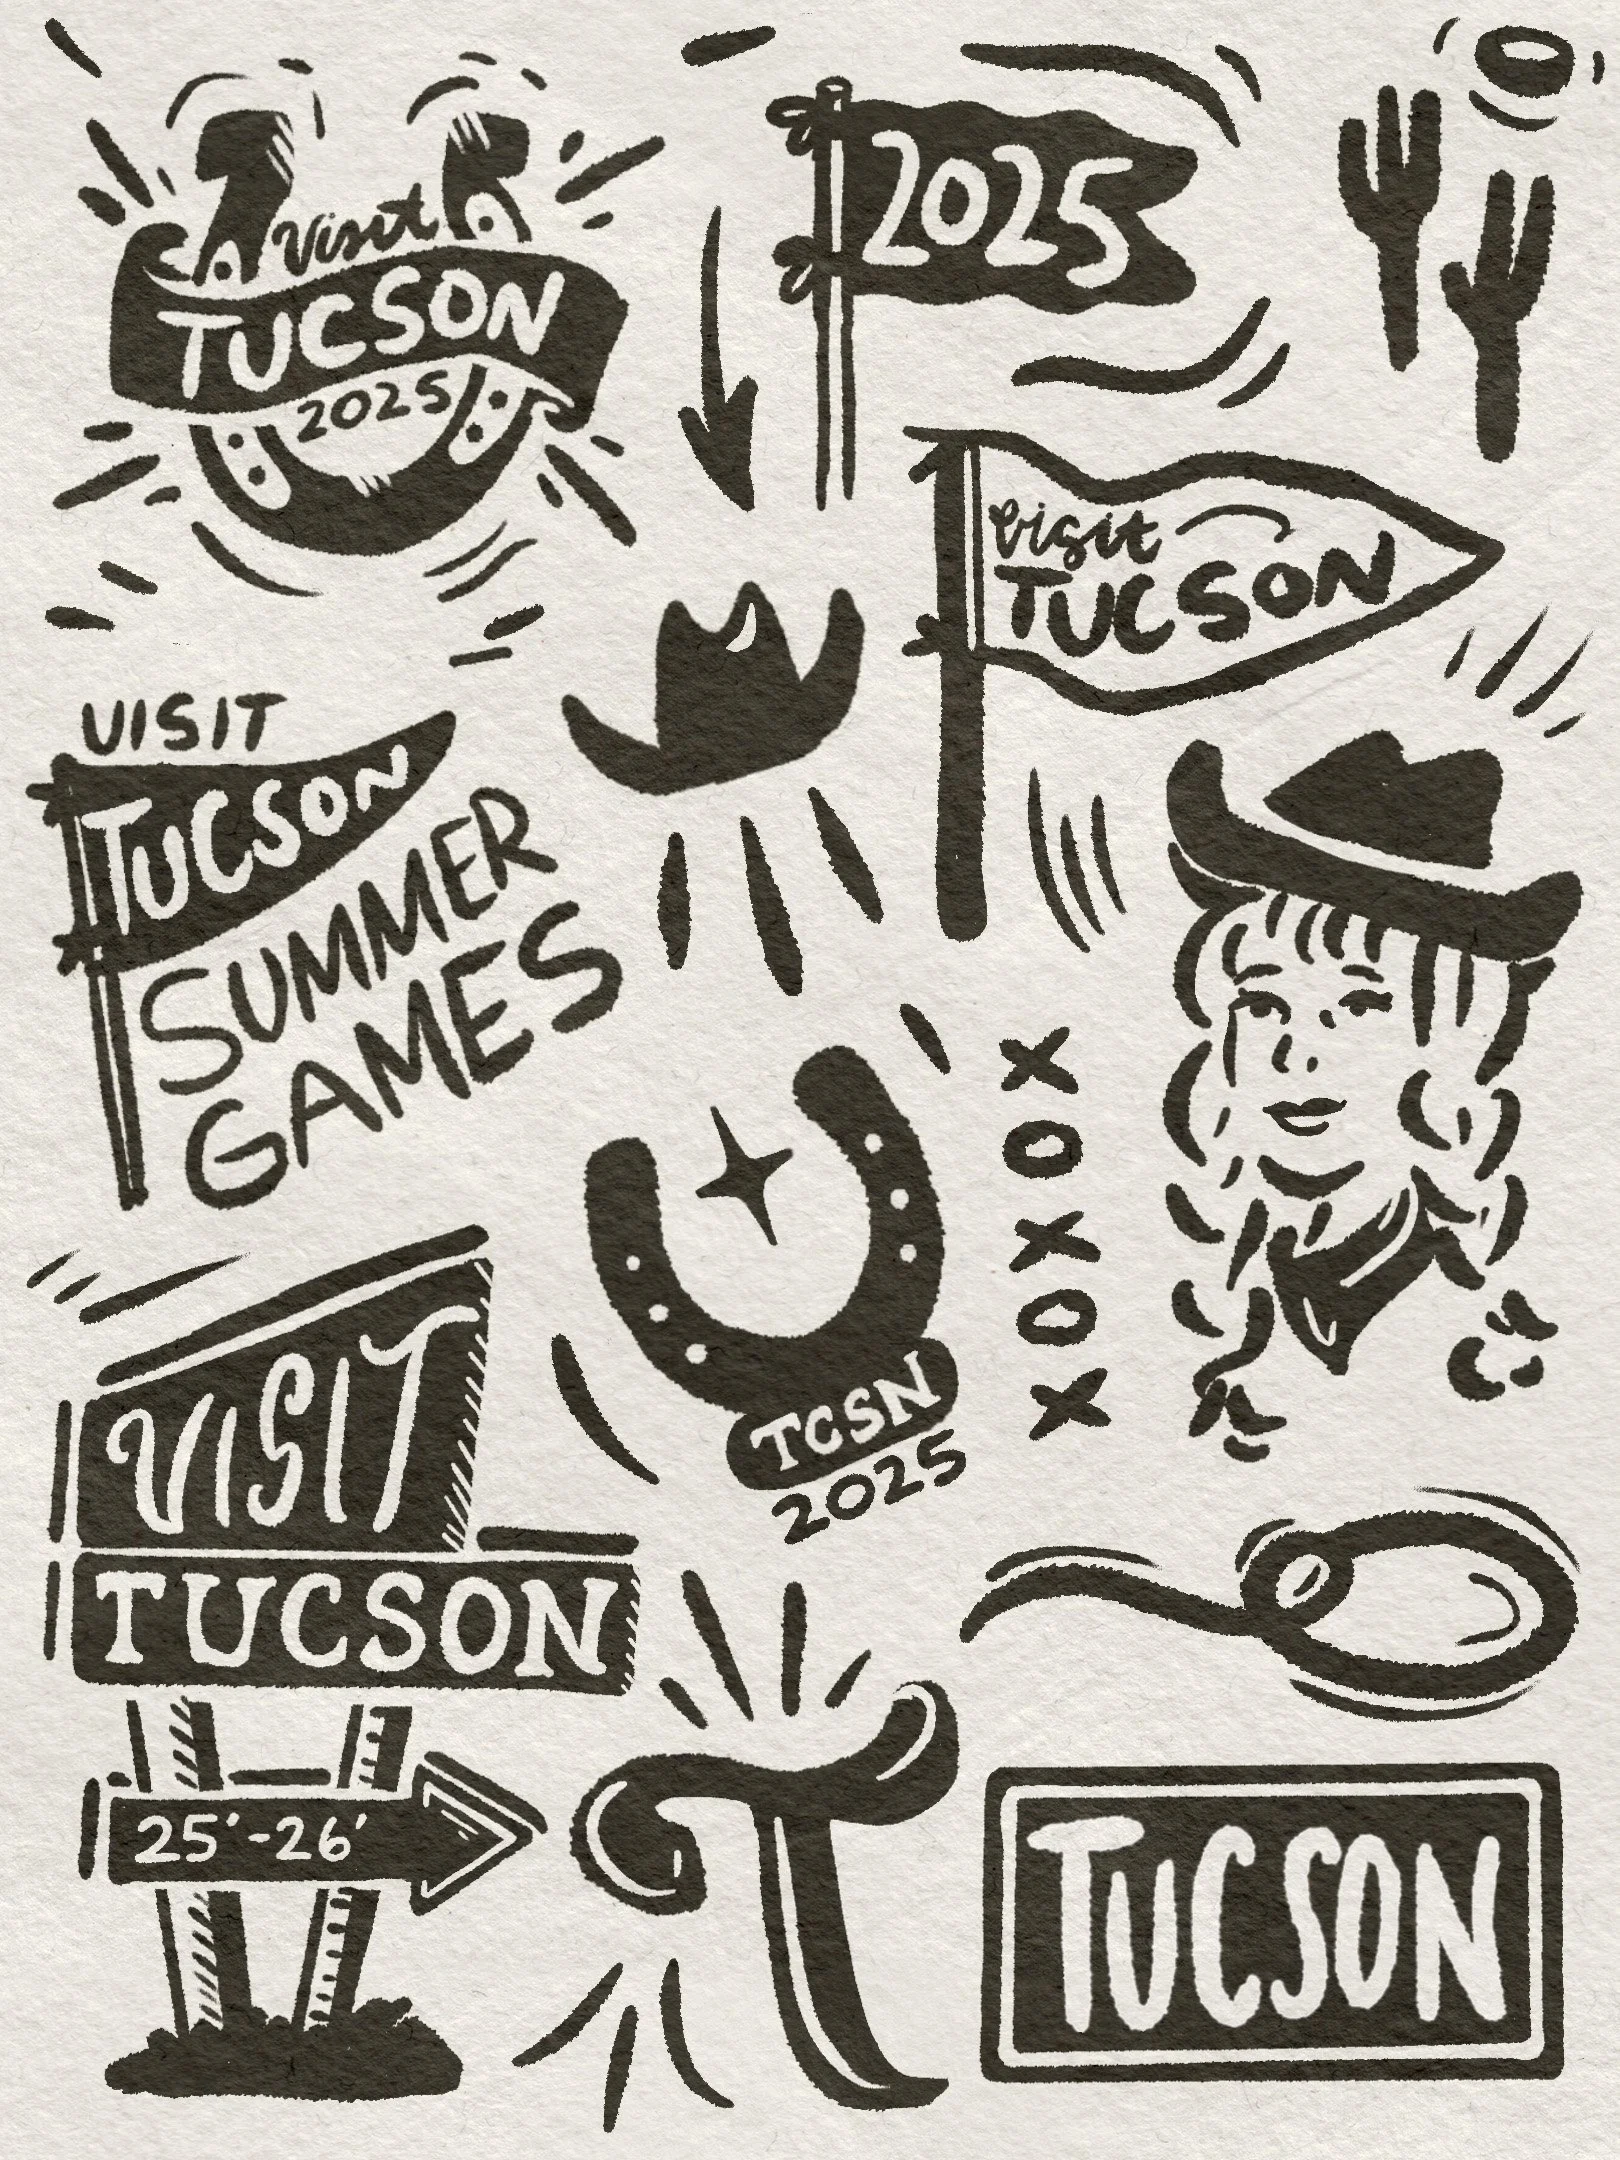 Visit
TUCSON
2025
2025
visit
TUCSON
VISIT
TUCSON
SUMMER
GAMES
XOXOX
TCSN
2025
VISIT
TUCSON
25'-26'
T
TUCSON